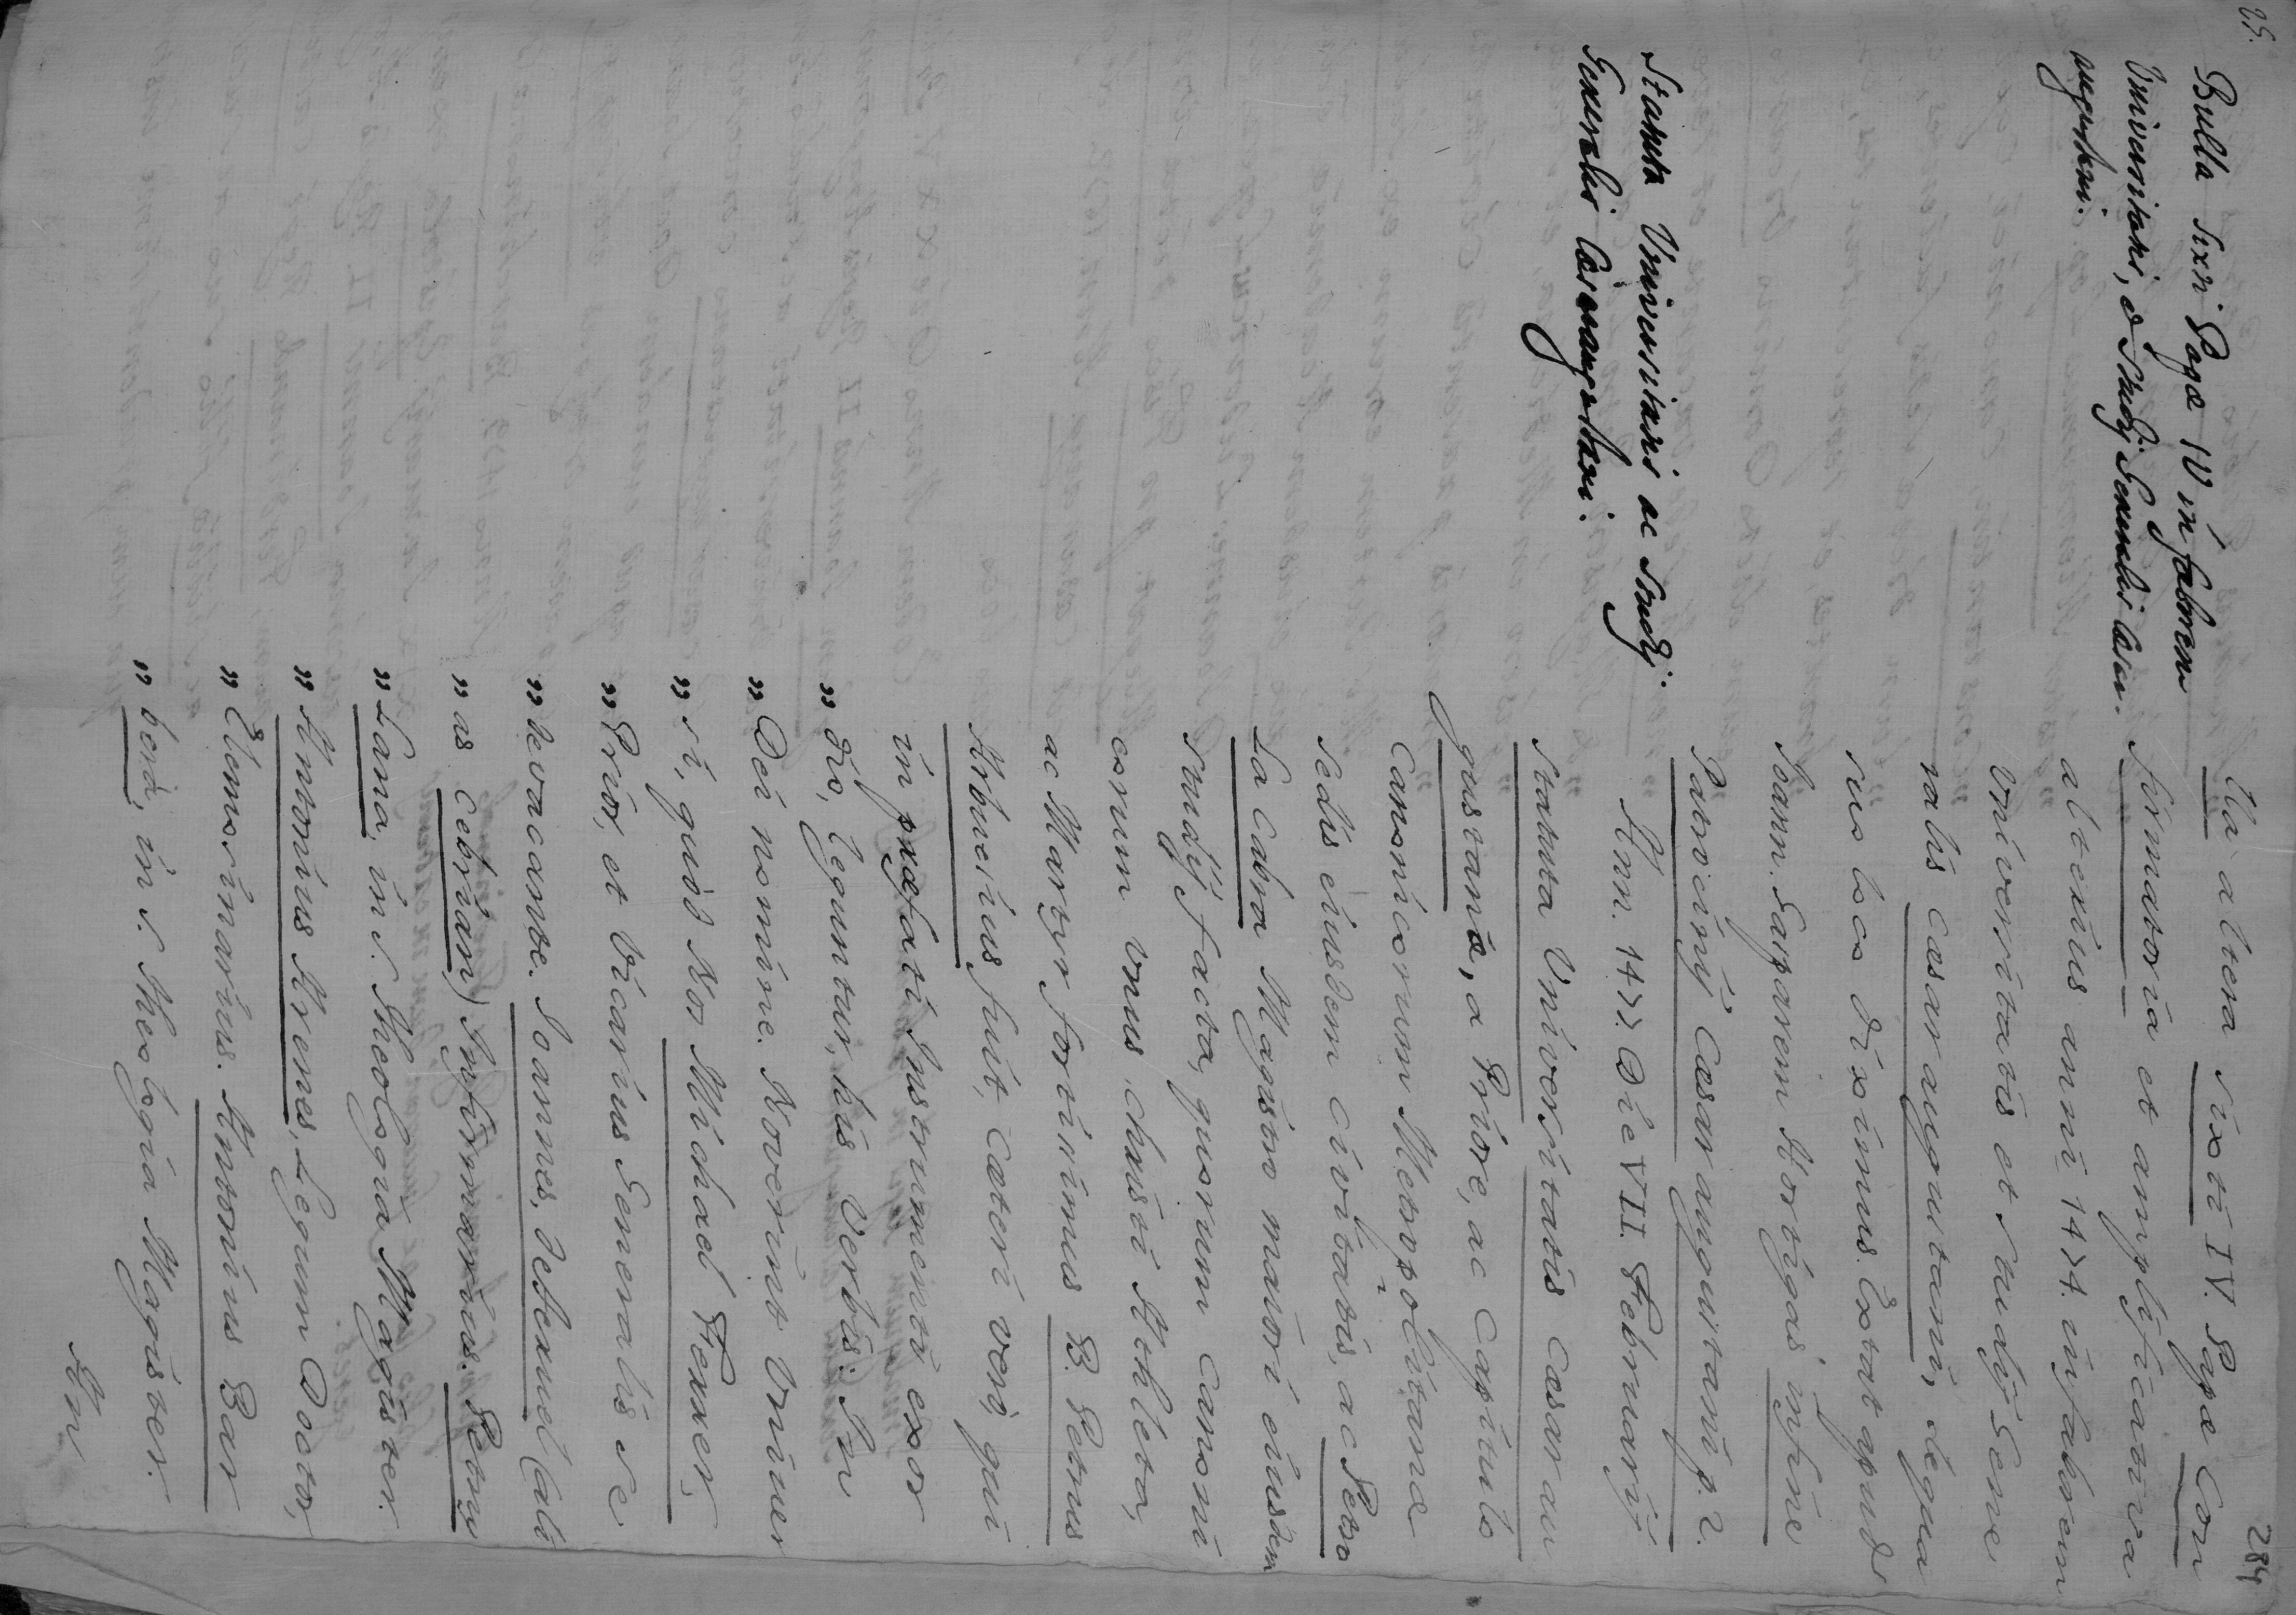 25.
284
Bulla Sixti Papæ IV in favorem
Universitatis, & Studij Generalis Cæsar-
augustani.
Statuta Universitatis ac Studij
Generalis Cæsaraugustani.
lla altera Sixti IV. Papæ Con
firmatoria et amplificativa
alterius anni 1474. in favorem
Vniversitatis et Studij Gene
ralis Cæsaraugustani, de qua
suo loco diximus. Extat apud
Joann. Gasparem Hortigas, in fine
Patrocinij Cæsaraugustani p. 2.
Ann. 1477. Die VII. Februarij
Statuta Vniversitatis Cæsarau
gustanæ, a Priore, ac Capitulo
Canonicorum Metropolitanæ
Sedis eiusdem Civitatis, ac Petro
La Cabra Magistro maiori eiusdem
Studij facta, quorum Canoni
corum vnus Christi Athleta,
ac Martyr fortissimus B. Petrus
Arbuesius fuit, Cæteri verò, qui
in præfati Instrumenti exor
" dio, leguntur, his verbis: In
" Dei nomine. Noverint Vniver
" si, quòd Nos Michael Ferrer,
" Prior, et Vicarius Generalis Se
" de vacante. Joannes, (ali
" as Cebrian) Infirmarius. Petrus
" Lana, in S. Theologia Magister.
" Antonius Arenes, Legum Doctor,
" Elemosinarius. Antonius Bar
" berà, in S. Theologia Magister.
An